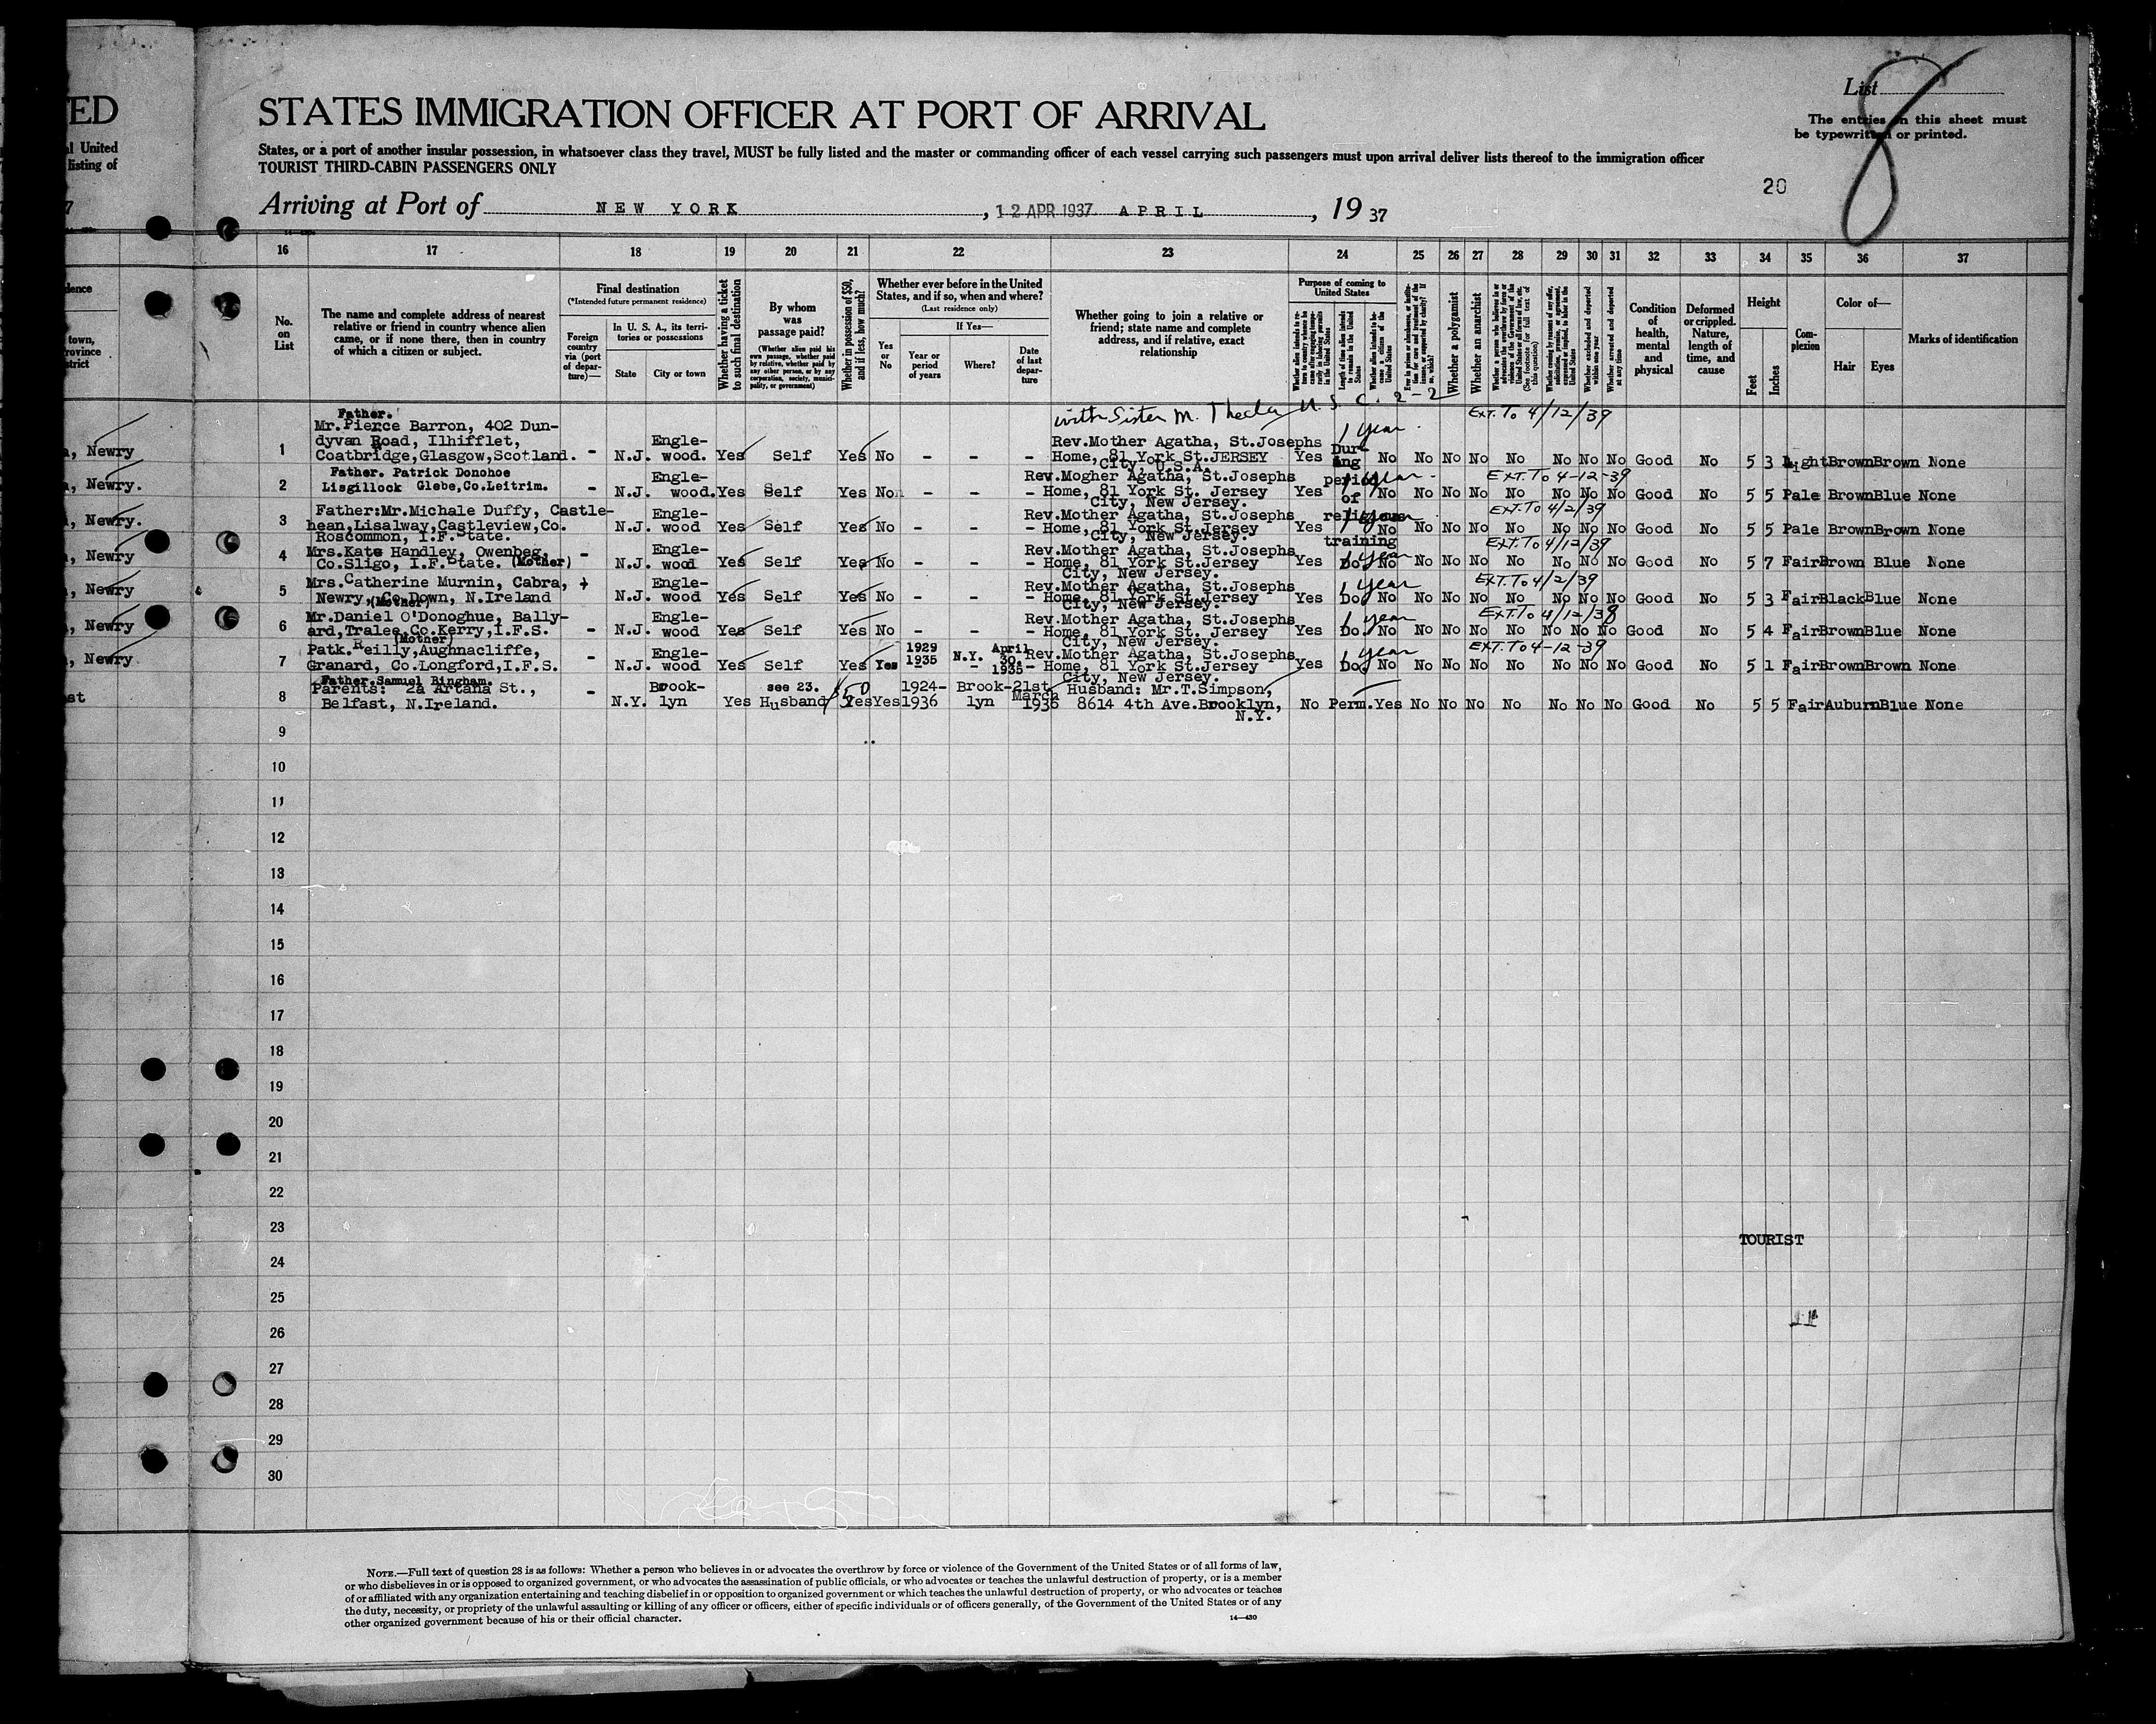 ED
al United
listing of
7
dence
town,
rovince
strict
STATES IMMIGRATION OFFICER AT PORT OF ARRIVAL
List 8
The entries on this sheet must
be typewritten or printed.
States, or a port of another insular possession, in whatsoever class they travel, MUST be fully listed and the master or commanding officer of each vessel carrying such passengers must upon arrival deliver lists thereof to the immigration officer
TOURIST THIRD-CABIN PASSENGERS ONLY
20
Arriving at Port of NEW YORK, 12 APR 1937 APRIL, 19 37
16 17 18 19 20 21 22 23 24 25 26 27 28 29 30 31 32 33 34 35 36 37
No.
on
List
The name and complete address of nearest
relative or friend in country whence alien
came, or if none there, then in country
of which a citizen or subject.
Final destination
(*Intended future permanent residence)
Foreign
country
via (port
of depar-
ture)—
In U. S. A., its terri-
tories or possessions
State
City or town
Whether having a ticket
to such final destination
By whom
was
passage paid?
(Whether alien paid his
own passage, whether paid
by relative, whether paid by
any other person, or by any
corporation, society, munici-
pality, or government)
Whether in possession of $50,
and if less, how much?
Whether ever before in the United
States, and if so, when and where?
(Last residence only)
Yes
or
No
If Yes—
Year or
period
of years
Where?
Date
of last
depar-
ture
Whether going to join a relative or
friend; state name and complete
address, and if relative, exact
relationship
Purpose of coming to
United States
Length of time alien intends
to remain in the United
States
Whether alien intends to be-
come a citizen of the
United States
Whether a polygamist
Whether an anarchist
(See footnote for full text of
this question)
Whether excluded and deported
within one year
Whether arrested and deported
at any time
Condition
of
health,
mental
and
physical
Deformed
or crippled.
Nature,
length of
time, and
cause
Height
Feet
Inches
Com-
plexion
Color of—
Hair
Eyes
Marks of identification
with Sister M. Thecla U. S. C. 2-2 EXT. TO 4/12/39
Father.
Mr.Pierce Barron, 402 Dun-
dyvan Road, Ilhifflet,
Coatbridge,Glasgow,Scotland.
, Newry 1 - N.J. Engle-
wood. Yes Self Yes No - - -
Rev.Mother Agatha, St.Josephs
Home, 81 York St.JERSEY
City, U.S.A.
Yes 1 year. Dur-
ing No No No No No No No No Good No 5 3 LightBrownBrown None
Father. Patrick Donohoe
Lisgillock Glebe,Co.Leitrim.
, Newry. 2 - N.J. Engle-
wood.Yes Self Yes No - - -
Rev.Mogher Agatha, St.Josephs
Home, 81 York St. Jersey
City, New Jersey.
Yes period
of 1 year No No No No No No No No Good No 5 5 Pale BrownBlue None
EXT. TO 4-12-39
Father:Mr.Michale Duffy, Castle-
hean,Lisalway,Castleview,Co.
Roscommon, I.F.State.
, Newry. 3 N.J. Engle-
wood Yes Self Yes No - - -
Rev.Mother Agatha, St.Josephs
Home, 81 York St.Jersey
City, New Jersey.
Yes religious
training 1 year No No No No No No No No Good No 5 5 Pale BrownBrown None
EXT. TO 4/2/39
Mrs.Kate Handley, Owenbeg,
Co.Sligo, I.F.State. (Mother)
, Newry 4 - N.J. Engle-
wood Yes Self Yes No - - -
Rev.Mother Agatha, St.Josephs
Home, 81 York St.Jersey
City, New Jersey.
Yes Do 1 year No No No No No No No No Good No 5 7 FairBrown Blue None
EXT. TO 4/12/39
Mrs.Catherine Murnin, Cabra,
Newry, Co.Down, N.Ireland
(Mother)
, Newry 5 N.J. Engle-
wood Yes Self Yes No - - -
Rev.Mother Agatha, St.Josephs
Home, 81 York St.Jersey
City, New Jersey.
Yes Do 1 year No No No No No No No No Good No 5 3 FairBlackBlue None
EXT. TO 4/2/39
Mr.Daniel O'Donoghue, Bally-
ard,Tralee,Co.Kerry,I.F.S.
(Mother)
, Newry 6 - N.J. Engle-
wood Yes Self Yes No - - -
Rev.Mother Agatha, St.Josephs
Home, 81 York St. Jersey
City, New Jersey.
Yes Do. 1 year No No No No No No No No Good No 5 4 FairBrownBlue None
EXT. TO 4/12/38
Patk.Reilly,Aughnacliffe,
Granard, Co.Longford,I.F.S.
, Newry 7 - N.J. Engle-
wood Yes Self Yes Yes 1929
1935 N.Y. April
30.
1935
Rev.Mother Agatha, St.Josephs
Home, 81 York St.Jersey
City, New Jersey.
Yes Do. 1 year No No No No No No No No Good No 5 1 FairBrownBrown None
EXT. TO 4-12-39
Father.Samuel Bingham.
Parents: 2a Artana St.,
Belfast, N.Ireland.
st 8 - N.Y. Brook-
lyn Yes see 23.
Husband $50 Yes Yes 1924-
1936 Brook-
lyn 21st
March
1936
Husband: Mr.T.Simpson,
8614 4th Ave.Brooklyn,
N.Y.
No Perm.Yes No No No No No No No Good No 5 5 FairAuburnBlue None
9
10
11
12
13
14
15
16
17
18
19
20
21
22
23
TOURIST
24
25
26
27
28
29
30
NOTE.—Full text of question 28 is as follows: Whether a person who believes in or advocates the overthrow by force or violence of the Government of the United States or of all forms of law,
or who disbelieves in or is opposed to organized government, or who advocates the assassination of public officials, or who advocates or teaches the unlawful destruction of property, or is a member
of or affiliated with any organization entertaining and teaching disbelief in or opposition to organized government or which teaches the unlawful destruction of property, or who advocates or teaches
the duty, necessity, or propriety of the unlawful assaulting or killing of any officer or officers, either of specific individuals or of officers generally, of the Government of the United States or of any
other organized government because of his or their official character.
14—430